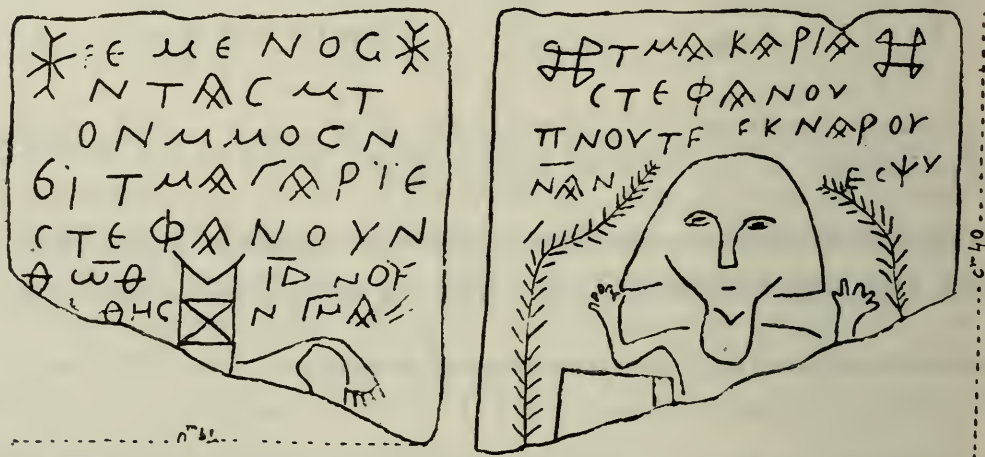 ⲈⲘⲈⲚⲞⲤ
ⲚⲦⲀⲤⲘⲦ
ⲞⲚⲘⲘⲞⲤⲚ
ϬⲒ ⲦⲘⲀⲄⲀⲢⲒⲈ
ⲤⲦⲈⲪⲀⲚⲞⲨⲚ
ⲐⲰ̅Ⲑ ⲚⲞϤ
ⲐⲎⲤ
ⲦⲘⲀⲔⲀⲢⲒⲀ
ⲤⲦⲈⲪⲀⲚⲞⲨ
ⲠⲚⲞⲨⲦⲈ ⲈⲔⲚⲀⲢⲞⲨ
ⲚⲀ̅Ⲛ ⲈⲤⲮⲨ
cm 40